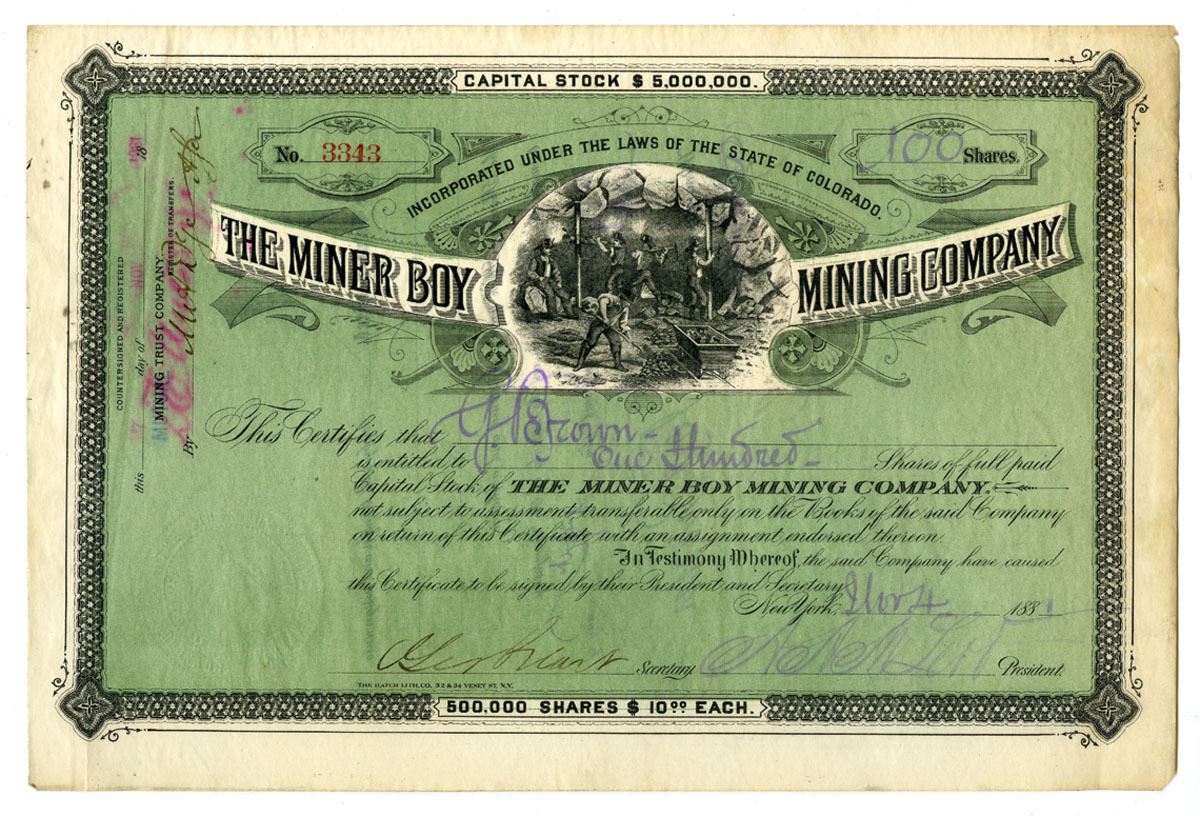 CAPITAL STOCK $ 5,000,000.
No. 3343
100 Shares.
INCORPORATED UNDER THE LAWS OF THE STATE OF COLORADO.
THE MINER BOY MINING COMPANY
This Certifies that J. Brown
is entitled to One Hundred Shares of full paid
Capital Stock of THE MINER BOY MINING COMPANY,
not subject to assessment, transferable only on the Books of the said Company
on return of this Certificate with an assignment endorsed thereon.
In Testimony Whereof, the said Company have caused
this Certificate to be signed by their President and Secretary
New York, Nov 4 1881
Secretary. President.
THE HATCH LITH. CO. 32 & 34 VESEY ST. N.Y.
500,000 SHARES $ 10 00 EACH.
COUNTERSIGNED AND REGISTERED
this 17 day of NOV 18
MINING TRUST COMPANY,
REGISTER OF TRANSFERS.
By